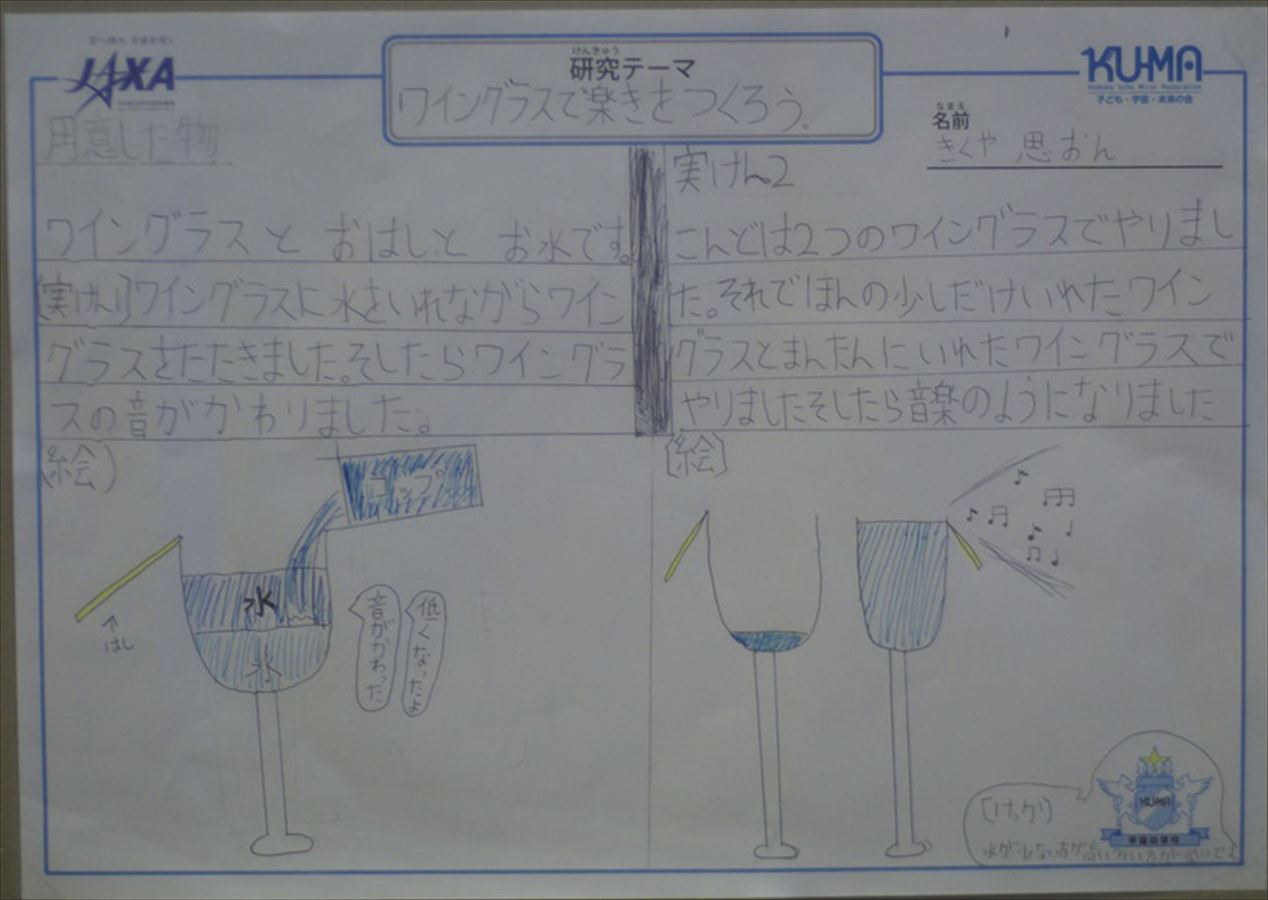 空へ挑み、宇宙を拓く
JAXA
けんきゅう
研究テーマ
ワイングラスで楽きをつくろう。
KUMA
子ども・宇宙・未来の会
なまえ
名前
きくや 思おん
用意した物
ワイングラスと おはしと お水です。
(実けん1)ワイングラスに水をいれながらワイン
グラスをたたきました。そしたらワイングラ
スの音がかわりました。
実けん2
こんどは2つのワイングラスでやりまし
た。それでほんの少しだけいれたワイン
グラスとまんたんにいれたワイングラスで
やりましたそしたら音楽のようになりました
(絵)
コップ
水
水
↑
はし
音がかわった
低くなったよ
[絵]
(けっか)
水が少ない方が高い多い方が低いです
KUMA
宇宙の学校